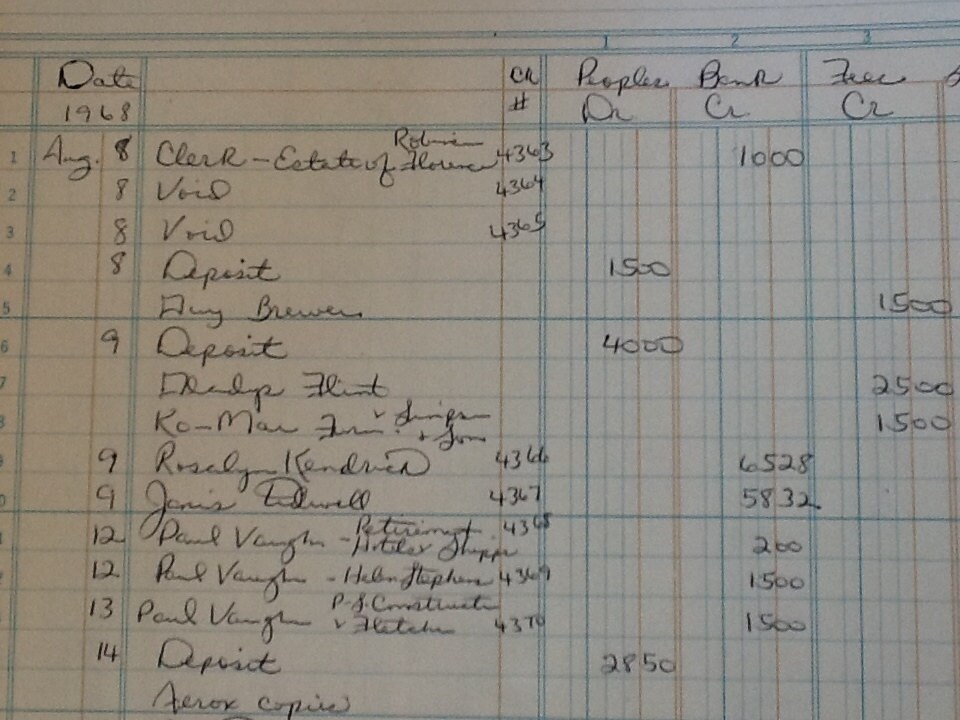 1 2 3
Date CR Peoples Bank Fees
1968 # Dr Cr Cr
1 Aug. 8 Clerk - Estate of Florence 4363 1000
2 8 Void 4364
3 8 Void 4365
4 8 Deposit 1500
5 Amy Brewer 1500
6 9 Deposit 4000
7 Flint 2500
8 Ko-Mar Furn. v Simpson + Son 1500
9 Roselyn Kendrick 4366 6528
9 Janis Tidwell 4367 5832
12 Paul Vaughn - Retirement 4368 200
12 Paul Vaughn - Helen Stephens 4369 1500
13 Paul Vaughn P.S. Constructi v Fletcher 4370 1500
14 Deposit 2850
Xerox copies